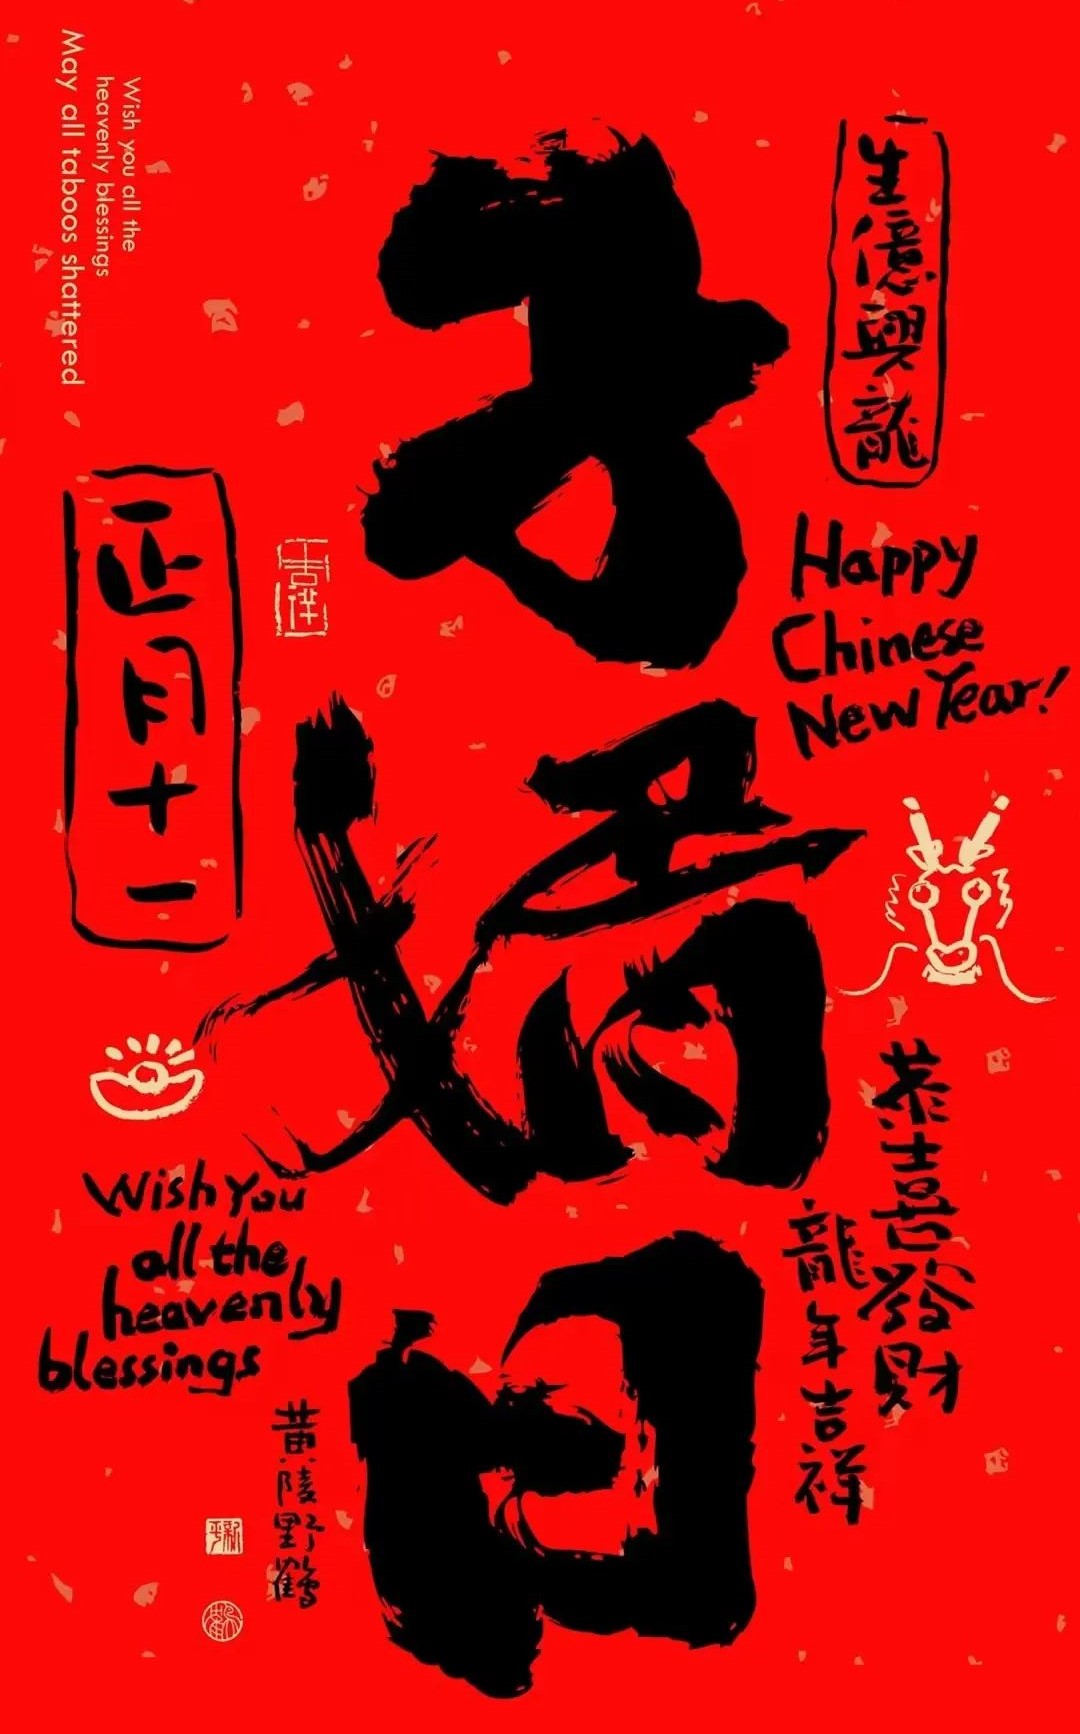 子婿日
生億興龍
Happy
Chinese
New Year!
恭喜發財
龍年吉祥
正月十一
吉祥
Wish you all the
heavenly blessings
May all taboos shattered
Wish You
all the
heavenly
blessings
黄陵野鶴